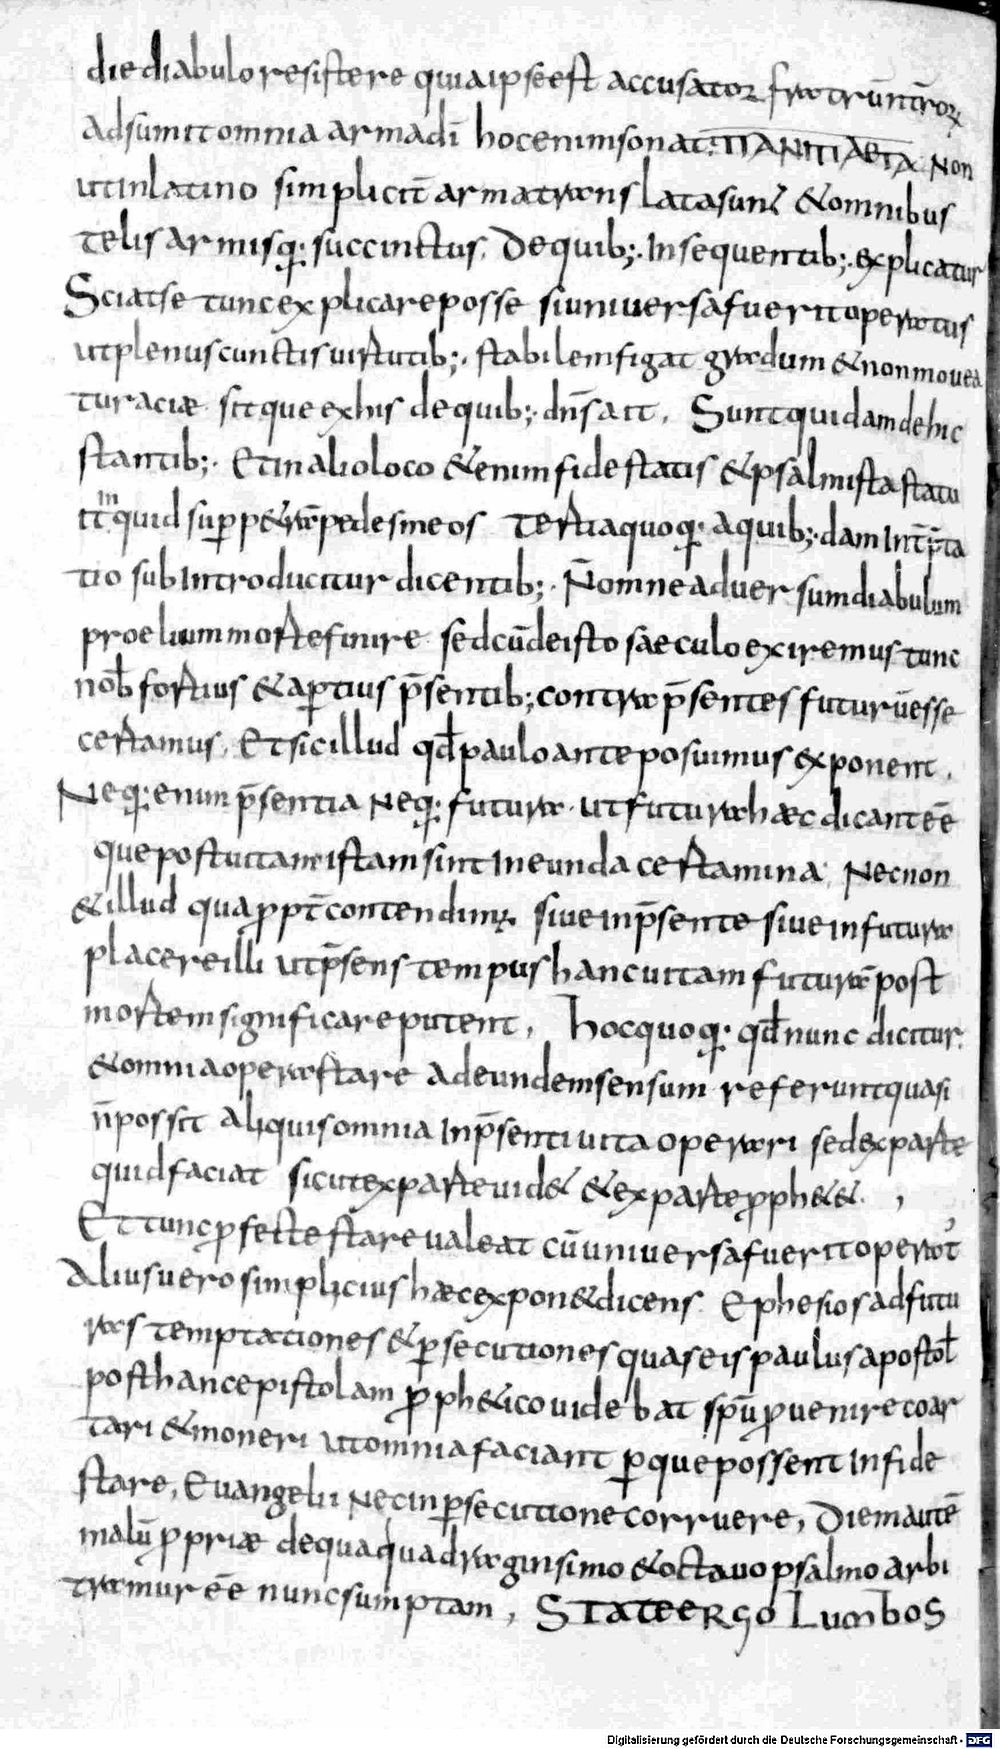 die diabulo resistere quia ipse est accusator fratrū ntrōrū
adsumit omnia arma dī hoc enim sonat: ΠΑΝΠΙΑΕΤΑ Non
ut in latino simplicit̄ arma translata sunt & omnibus
telis armisq: succinctus. De quib;. In sequentib;. explicatur
Sciat se tunc explicare posse si universa fuerit operatus
ut plenus cunctis uirtutib;. stabilem figat gradum & non mouea
tur aciæ sitque ex his de quib;. dn̄s ait. Sunt quidam de hic
stantib;. Et in alio loco & enim fide statis & psalmista statu
it inquid sup petrā pedes meos Tertia quoq: a quib;.dam Int̄p̄ta
tio subIntroducitur dicentib;. N̄ omne aduersum diabulum
proelium morte finire sed cū de isto saeculo exiremus tunc
nob̄ fortius & apertius p̄sentib; contra p̄sentes futurū esse
certamus. Et sic illud qđ paulo ante posuimus exponent.
Neq: enim p̄sentia Neq: futura. ut futura hæc dicant eē
que post uitam istam sint Ineunda certamina. Necnon
& illud qua ppt̄ contendimus. siue in p̄sente siue in futura
placere illi ut p̄sens tempus hanc uitam futurā post
mortem significare putent. Hoc quoq: qđ nunc dicitur.
& omnia opera stare ad eundem sensum referunt quasi
n̄ possit aliquis omnia In p̄senti uita operari sed ex parte
quid faciat sicut ex parte uid& & ex parte pph&&.
Et tunc pfecte stare ualeat cū uniuersa fuerit operat'
Alius uero simplicius hæc expon& dicens. Ephesios ad futu
ras temptationes & psecutiones quas eis paulus apostol̄
post hanc epistolam pph&ico uidebat spū puenire coar
tari & moneri ut omnia faciant p que possent In fide
stare. Euangelii Nec in psecutione corruere. Diem autē
malū ppriæ de qua quadraginsimo & octauo psalmo arbi
tramur eē nunc sumptam. STATE ERGO LUMBOS
Digitalisierung gefördert durch die Deutsche Forschungsgemeinschaft - DFG